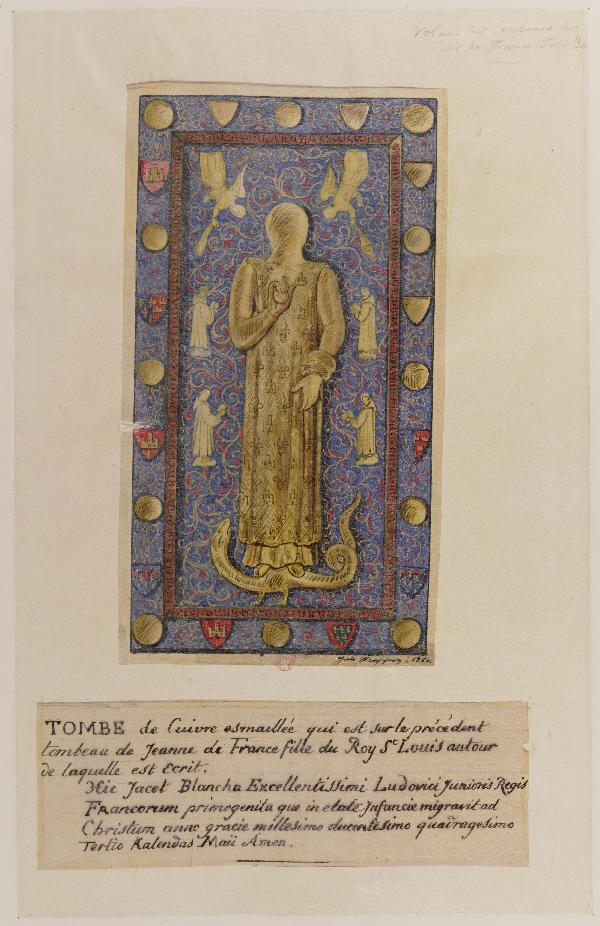 des Tombeaux des
TOMBE de Cuivre esmaillée qui est sur le précédent
tombeau de Jeanne de France fille du Roy St Louis autour
de laquelle est Ecrit.
Hic Jacet Blancha Excellentissimi Ludovici Junioris Regis
Francorum primogenita que in etate Jnfancie migravit ad
Christum anno gracie millesimo ducentesimo quadragesimo
Tertio Kalendas Maii Amen.